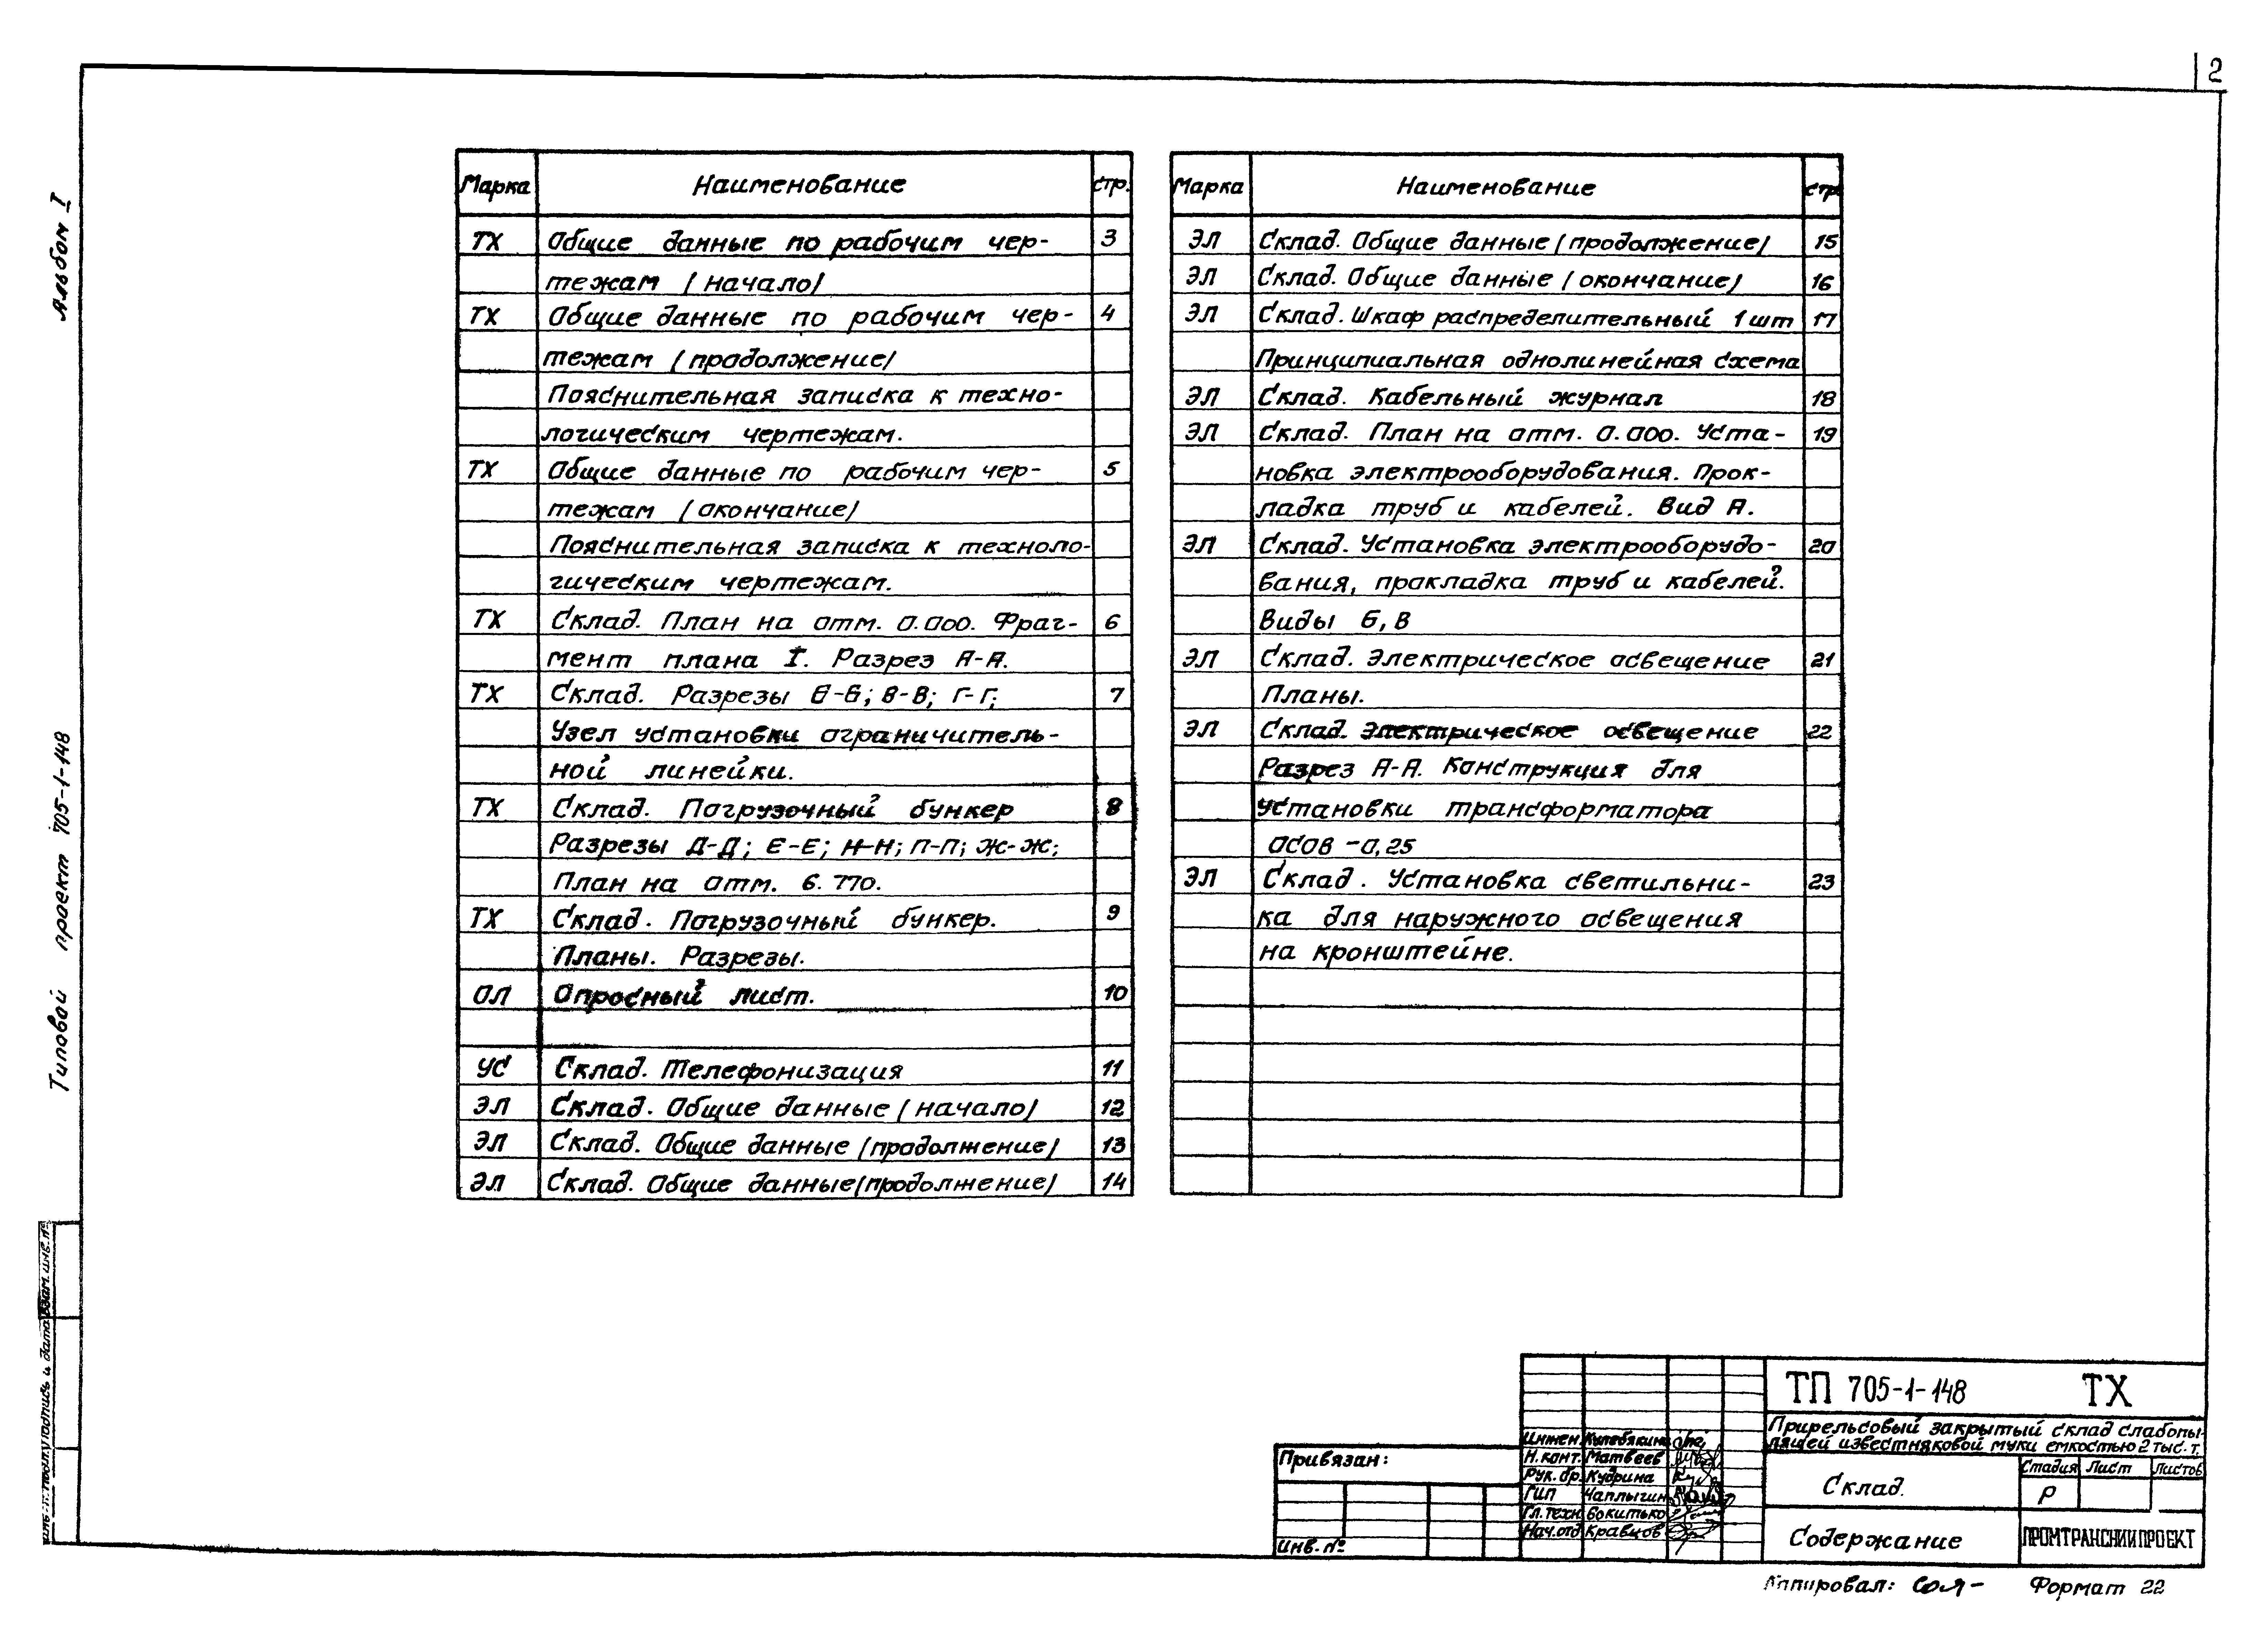 2
Альбом I
Типовой проект 705-1-148
Марка Наименование стр.
ТХ Общие данные по рабочим чер- 3
тежам (начало)
ТХ Общие данные по рабочим чер- 4
тежам (продолжение)
Пояснительная записка к техно-
логическим чертежам.
ТХ Общие данные по рабочим чер- 5
тежам (окончание)
Пояснительная записка к техноло-
гическим чертежам.
ТХ Склад. План на отм. 0.000. Фраг- 6
мент плана I. Разрез А-А.
ТХ Склад. Разрезы Б-Б; В-В; Г-Г; 7
Узел установки ограничитель-
ной линейки.
ТХ Склад. Погрузочный бункер 8
Разрезы Д-Д; Е-Е; Н-Н; П-П; Ж-Ж;
План на отм. 6.770.
ТХ Склад. Погрузочный бункер. 9
Планы. Разрезы.
ОЛ Опросный лист. 10
УС Склад. Телефонизация 11
ЭЛ Склад. Общие данные (начало) 12
ЭЛ Склад. Общие данные (продолжение) 13
ЭЛ Склад. Общие данные (продолжение) 14
Марка Наименование стр
ЭЛ Склад. Общие данные (продолжение) 15
ЭЛ Склад. Общие данные (окончание) 16
ЭЛ Склад. Шкаф распределительный 1 шт 17
Принципиальная однолинейная схема
ЭЛ Склад. Кабельный журнал 18
ЭЛ Склад. План на отм. 0.000. Уста- 19
новка электрооборудования. Прок-
ладка труб и кабелей. Вид А.
ЭЛ Склад. Установка электрооборудо- 20
вания, прокладка труб и кабелей.
Виды Б, В
ЭЛ Склад. Электрическое освещение 21
Планы.
ЭЛ Склад. Электрическое освещение 22
Разрез А-А. Конструкция для
установки трансформатора
ОСОВ-0,25
ЭЛ Склад. Установка светильни- 23
ка для наружного освещения
на кронштейне.
Взам. инв. №
Подпись и дата
Привязан:
Инв. №
Инжен.
Н. конт. Матвеев
Рук. бр. Кудрина
ГИП Чаплыгин
Гл. техн. Вокитько
Нач. отд Кравцов
ТП 705-1-148 ТХ
Прирельсовый закрытый склад слабопы-
лящей известняковой муки емкостью 2 тыс. т.
Склад.
Стадия Лист Листов
Р
Содержание
ПРОМТРАНСНИИПРОЕКТ
Копировал: Формат 22